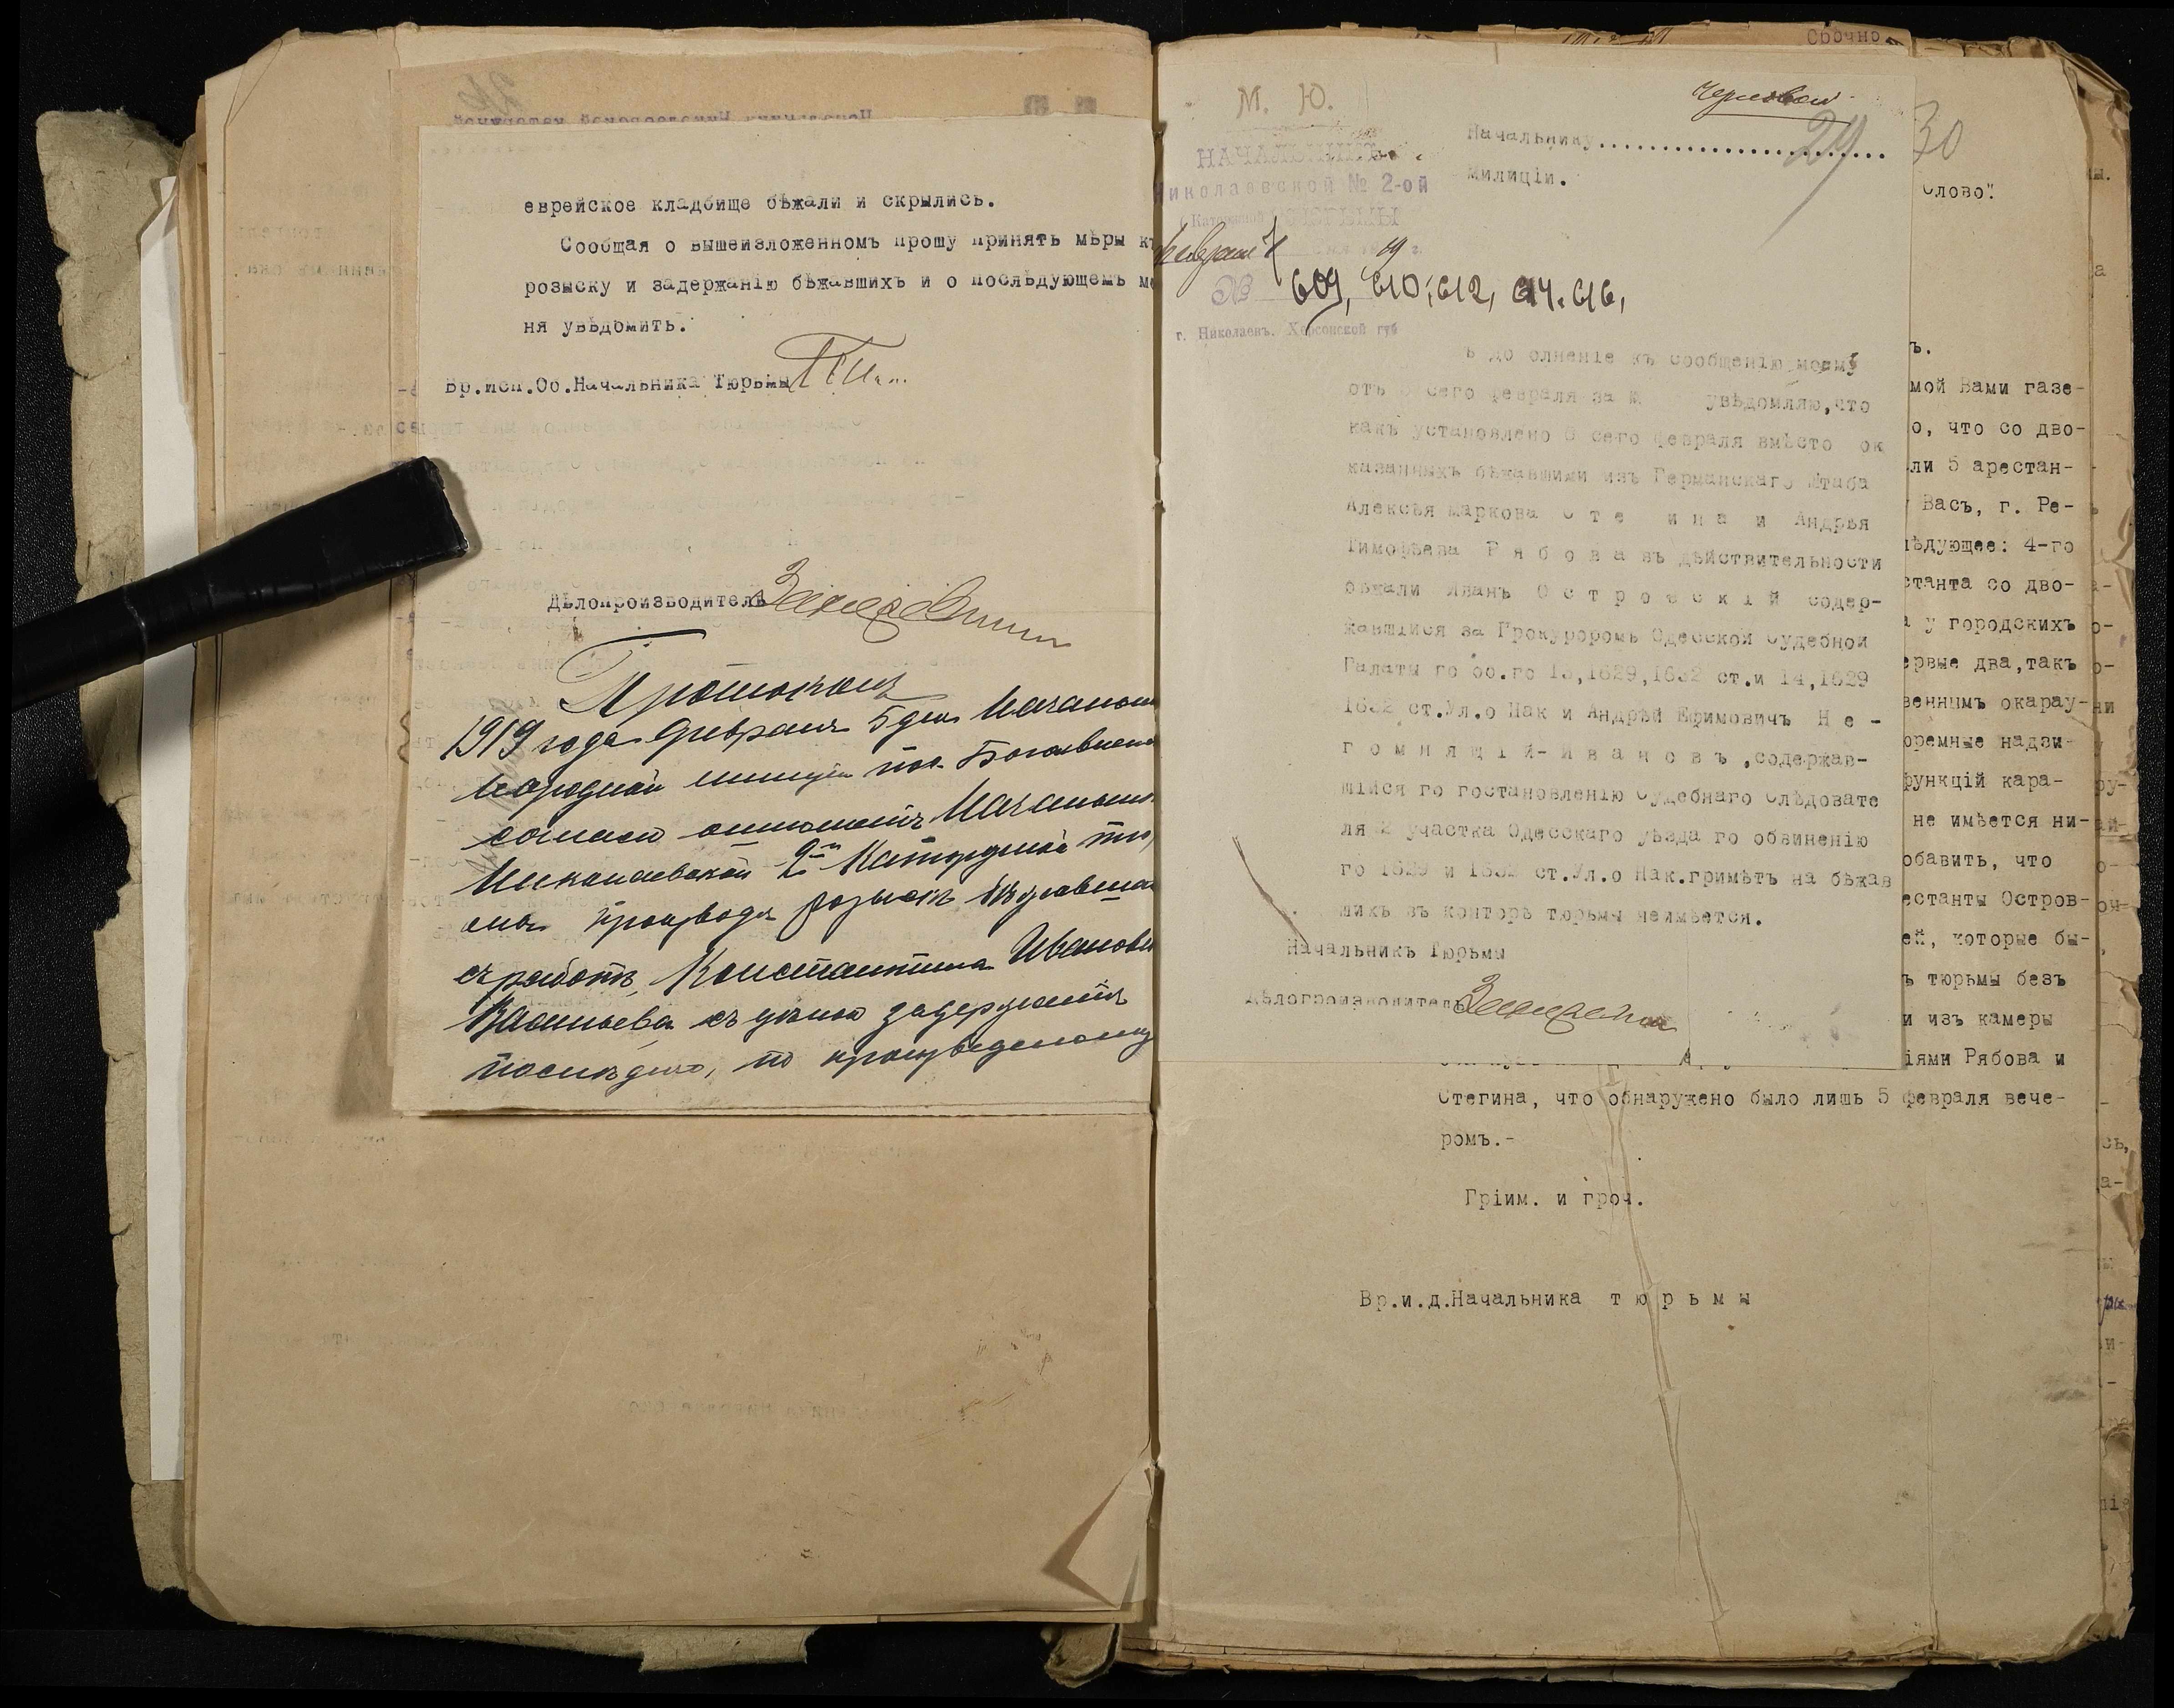 еврейское кладбище бѣжали и скрылись.
Сообщая о вышеизложенномъ прошу принять мѣры къ
розыску и задержанію бѣжавшихъ и о послѣдующемъ ме
ня увѣдомить.
Вр.исп.Об.Начальника Тюрьмы
Дѣлопроизводитель
Протоколъ
1919 года февраля 5 дня Начальн
Народной милиціи пос. Богоявленс
согласно отношенія Начальн
Николаевской 2й Каторжной тю
мы производя розыскъ бѣжавша
съ работъ, Константина Иванов
Васильева съ цѣлью задержанія
послѣдняго, по произведенному
Срочно
М. Ю.
Черновой
НАЧАЛЬНИКЪ
Николаевской № 2-ой
Каторжной ТЮРЬМЫ
февраля 19 г.
№ 609, 610, 612, 614. 616,
г. Николаевъ, Херсонской губ
Начальнику
милиціи.
29
30
ъ до олненіе къ сообщенію моему
отъ сего февраля за № увѣдомляю,что
какъ установлено 6 сего февраля вмѣсто ок
казанныхъ бѣжавшими изъ Германскаго Штаба
Алексѣя Маркова С т е и н а и Андрея
Тимофѣева Р я б о в а въ дѣйствительности
бѣжали Иванъ О с т р о в с к і й содер-
жавшійся за Прокуроромъ Одесской Судебной
Палаты по об.по 13,1629,1632 ст.и 14,1629
1632 ст.Ул.о Нак и Андрѣй Ефимовичъ Н е -
п о м н я щ і й-И в а н о в ъ ,содержав-
шійся по постановленію Судебнаго Слѣдовате
ля 2 участка Одесскаго уѣзда по обвиненію
по 1629 и 1632 ст.Ул.о Нак.примѣтъ на бѣжав
шихъ въ конторѣ тюрьмы неимѣется.
Начальникъ Тюрьмы
Дѣлопроизводитель
Слово".
ъ.
мой Вами газе-
о, что со дво-
ли 5 арестан-
Васъ, г. Ре-
лѣдующее: 4-го
станта со дво-
а у городскихъ
ервые два,такъ
веннымъ окарау-
оремные надзи-
функцій кара-
не имѣется ни-
обавить, что
естанты Остров-
ей, которые бы-
ъ тюрьмы безъ
и изъ камеры
іями Рябова и
Стегина, что обнаружено было лишь 5 февраля вече-
ромъ.-
Гріим. и гроч.
Вр.и.д.Начальника т ю р ь м ы